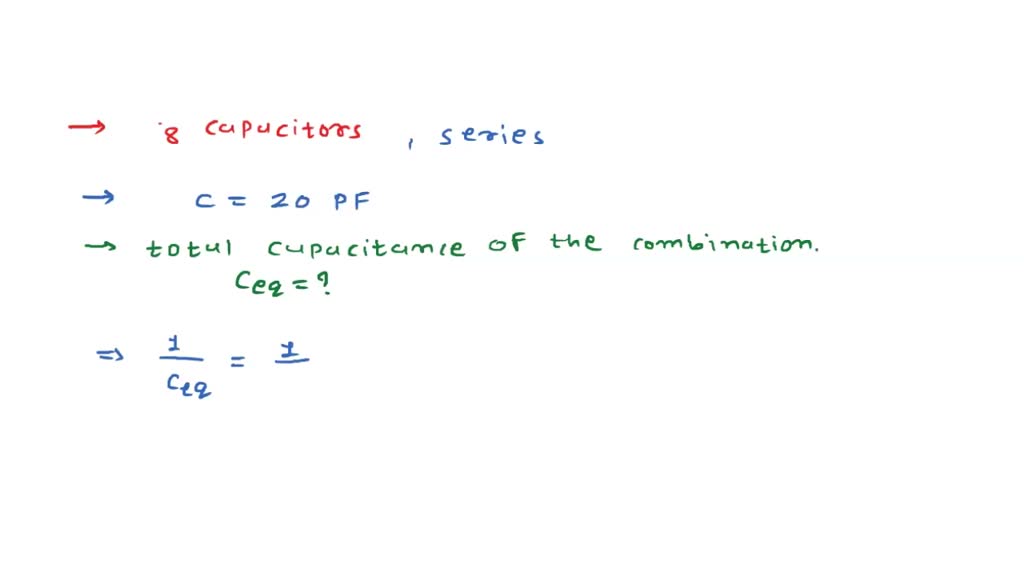 → 8 capacitors, series
→ C = 20 PF
→ total capacitance of the combination.
Ceq = ?
⇒ 1/Ceq = 1/